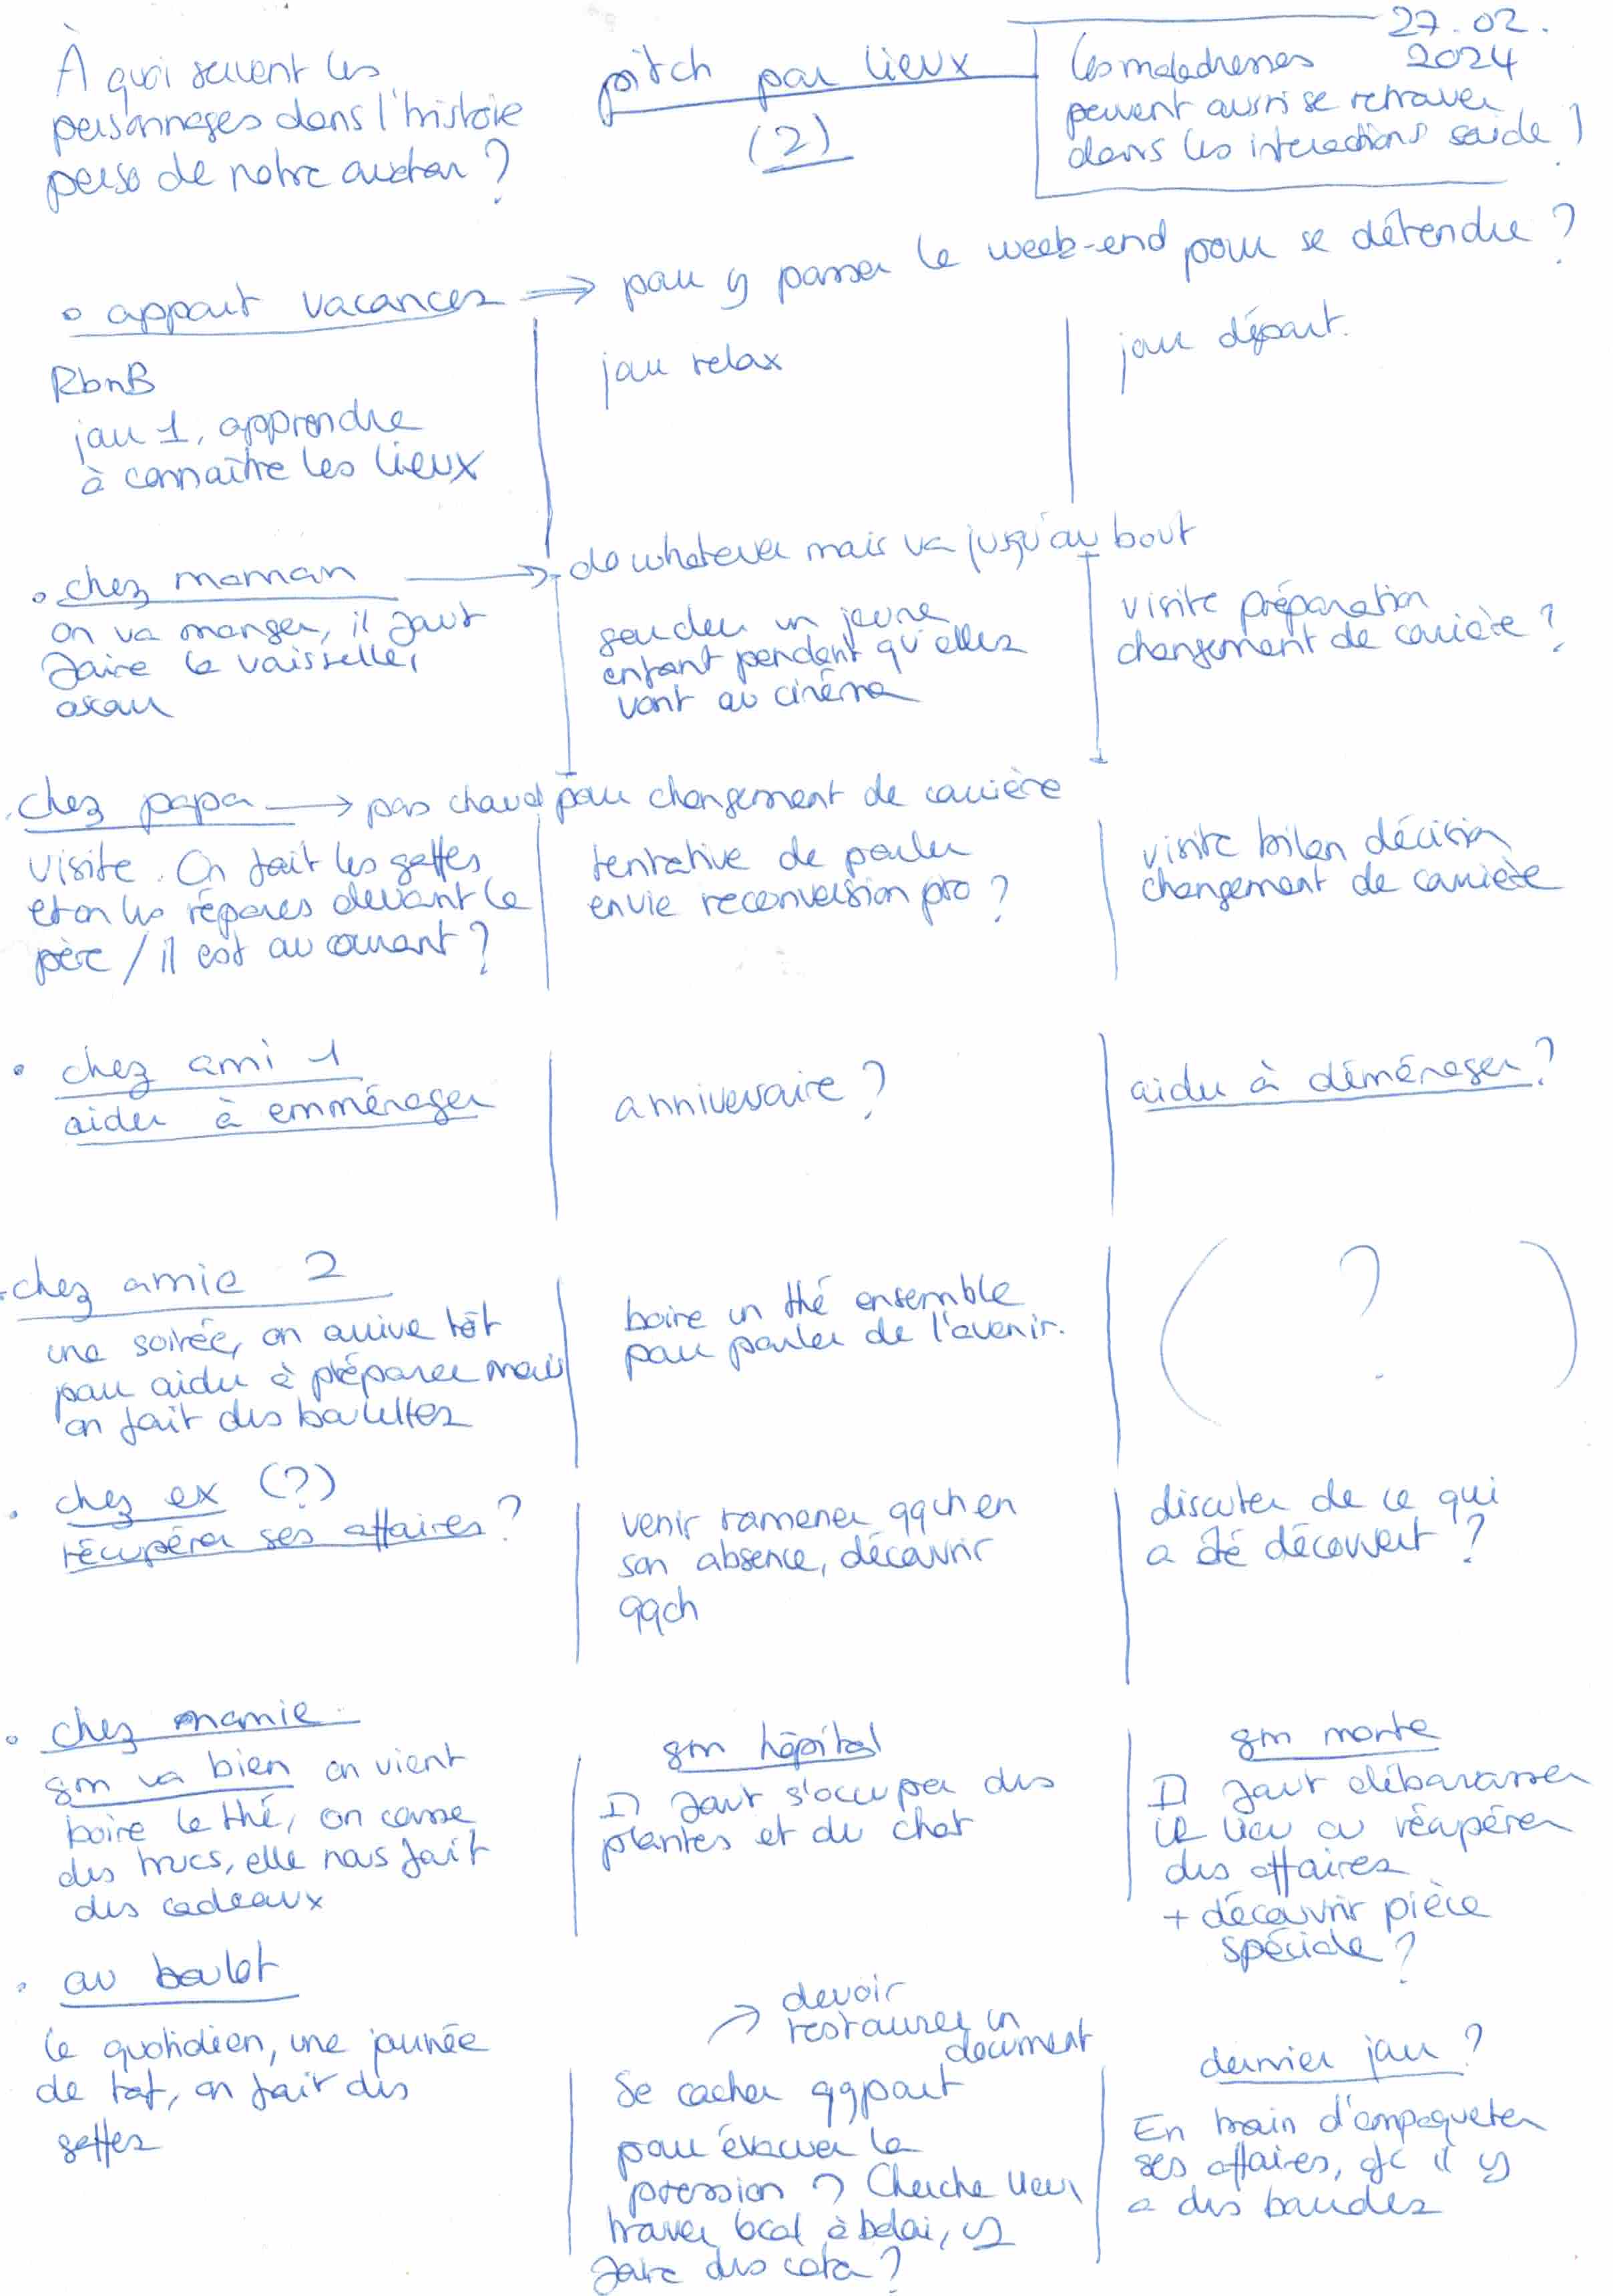 27.02.
2024
À quoi servent les
personnages dans l'histoire
perso de notre
pitch par lieux
(2)
les maladresses
peuvent aussi se retrouver
dans les interactions sociale !
• appart vacances ⇒ pour y passer le week-end pour se détendre ?
RbnB
jour 1, apprendre
à connaître les lieux
jour relax
jour départ.
• chez maman → do whatever mais va jusqu'au bout
on va manger, il faut
faire la vaisselle,
garder un jeune
enfant pendant qu'elles
vont au cinéma
visite préparation
changement de carrière ?
• chez papa → pas chaud pour changement de carrière
visite. On fait les gaffes
et on les répares devant le
père / il est au courant ?
tentative de parler
envie reconversion pro ?
visite bilan décision
changement de carrière
• chez ami 1
aider à emménager
anniversaire ?
aider à déménager ?
• chez amie 2
une soirée, on arrive tôt
pour aider à préparer mais
on fait des boulettes
boire un thé ensemble
pour parler de l'avenir.
( ? )
• chez ex (?)
récupérer ses affaires ?
venir ramener qqch en
son absence, découvrir
qqch
discuter de ce qui
a été découvert ?
• chez mamie
gm va bien on vient
boire le thé, on casse
des trucs, elle nous fait
des cadeaux
gm hôpital
Il faut s'occuper des
plantes et du chat
gm morte
Il faut débarasser
le lieu ou récupérer
des affaires
+ découvrir pièce
spéciale ?
• au boulot
le quotidien, une journée
de taf, on fait des
gaffes
→ devoir
restaurer un
document
Se cacher qqpart
pour évacuer la
pression ? Cherche lieu,
trouver local à balai, y
faire des cata ?
dernier jour ?
En train d'empaqueter
ses affaires, il y
a des bandes